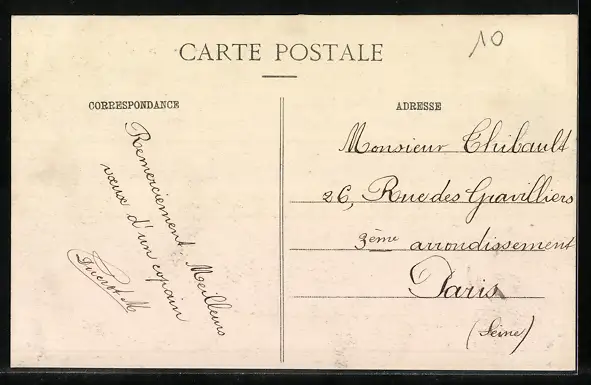 10
CARTE POSTALE
CORRESPONDANCE
Remerciement. Meilleurs
vœux d'un copain
Ducrot M
ADRESSE
Monsieur Thibault
26, Rue des Gravilliers
3ème arrondissement
Paris
(Seine)